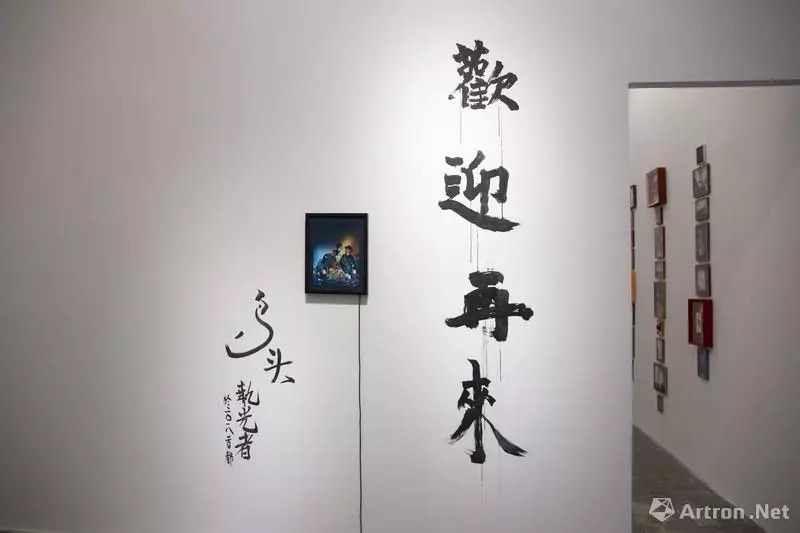 歡迎再來
鸟头
執光者
於二〇一八首都
Artron.Net